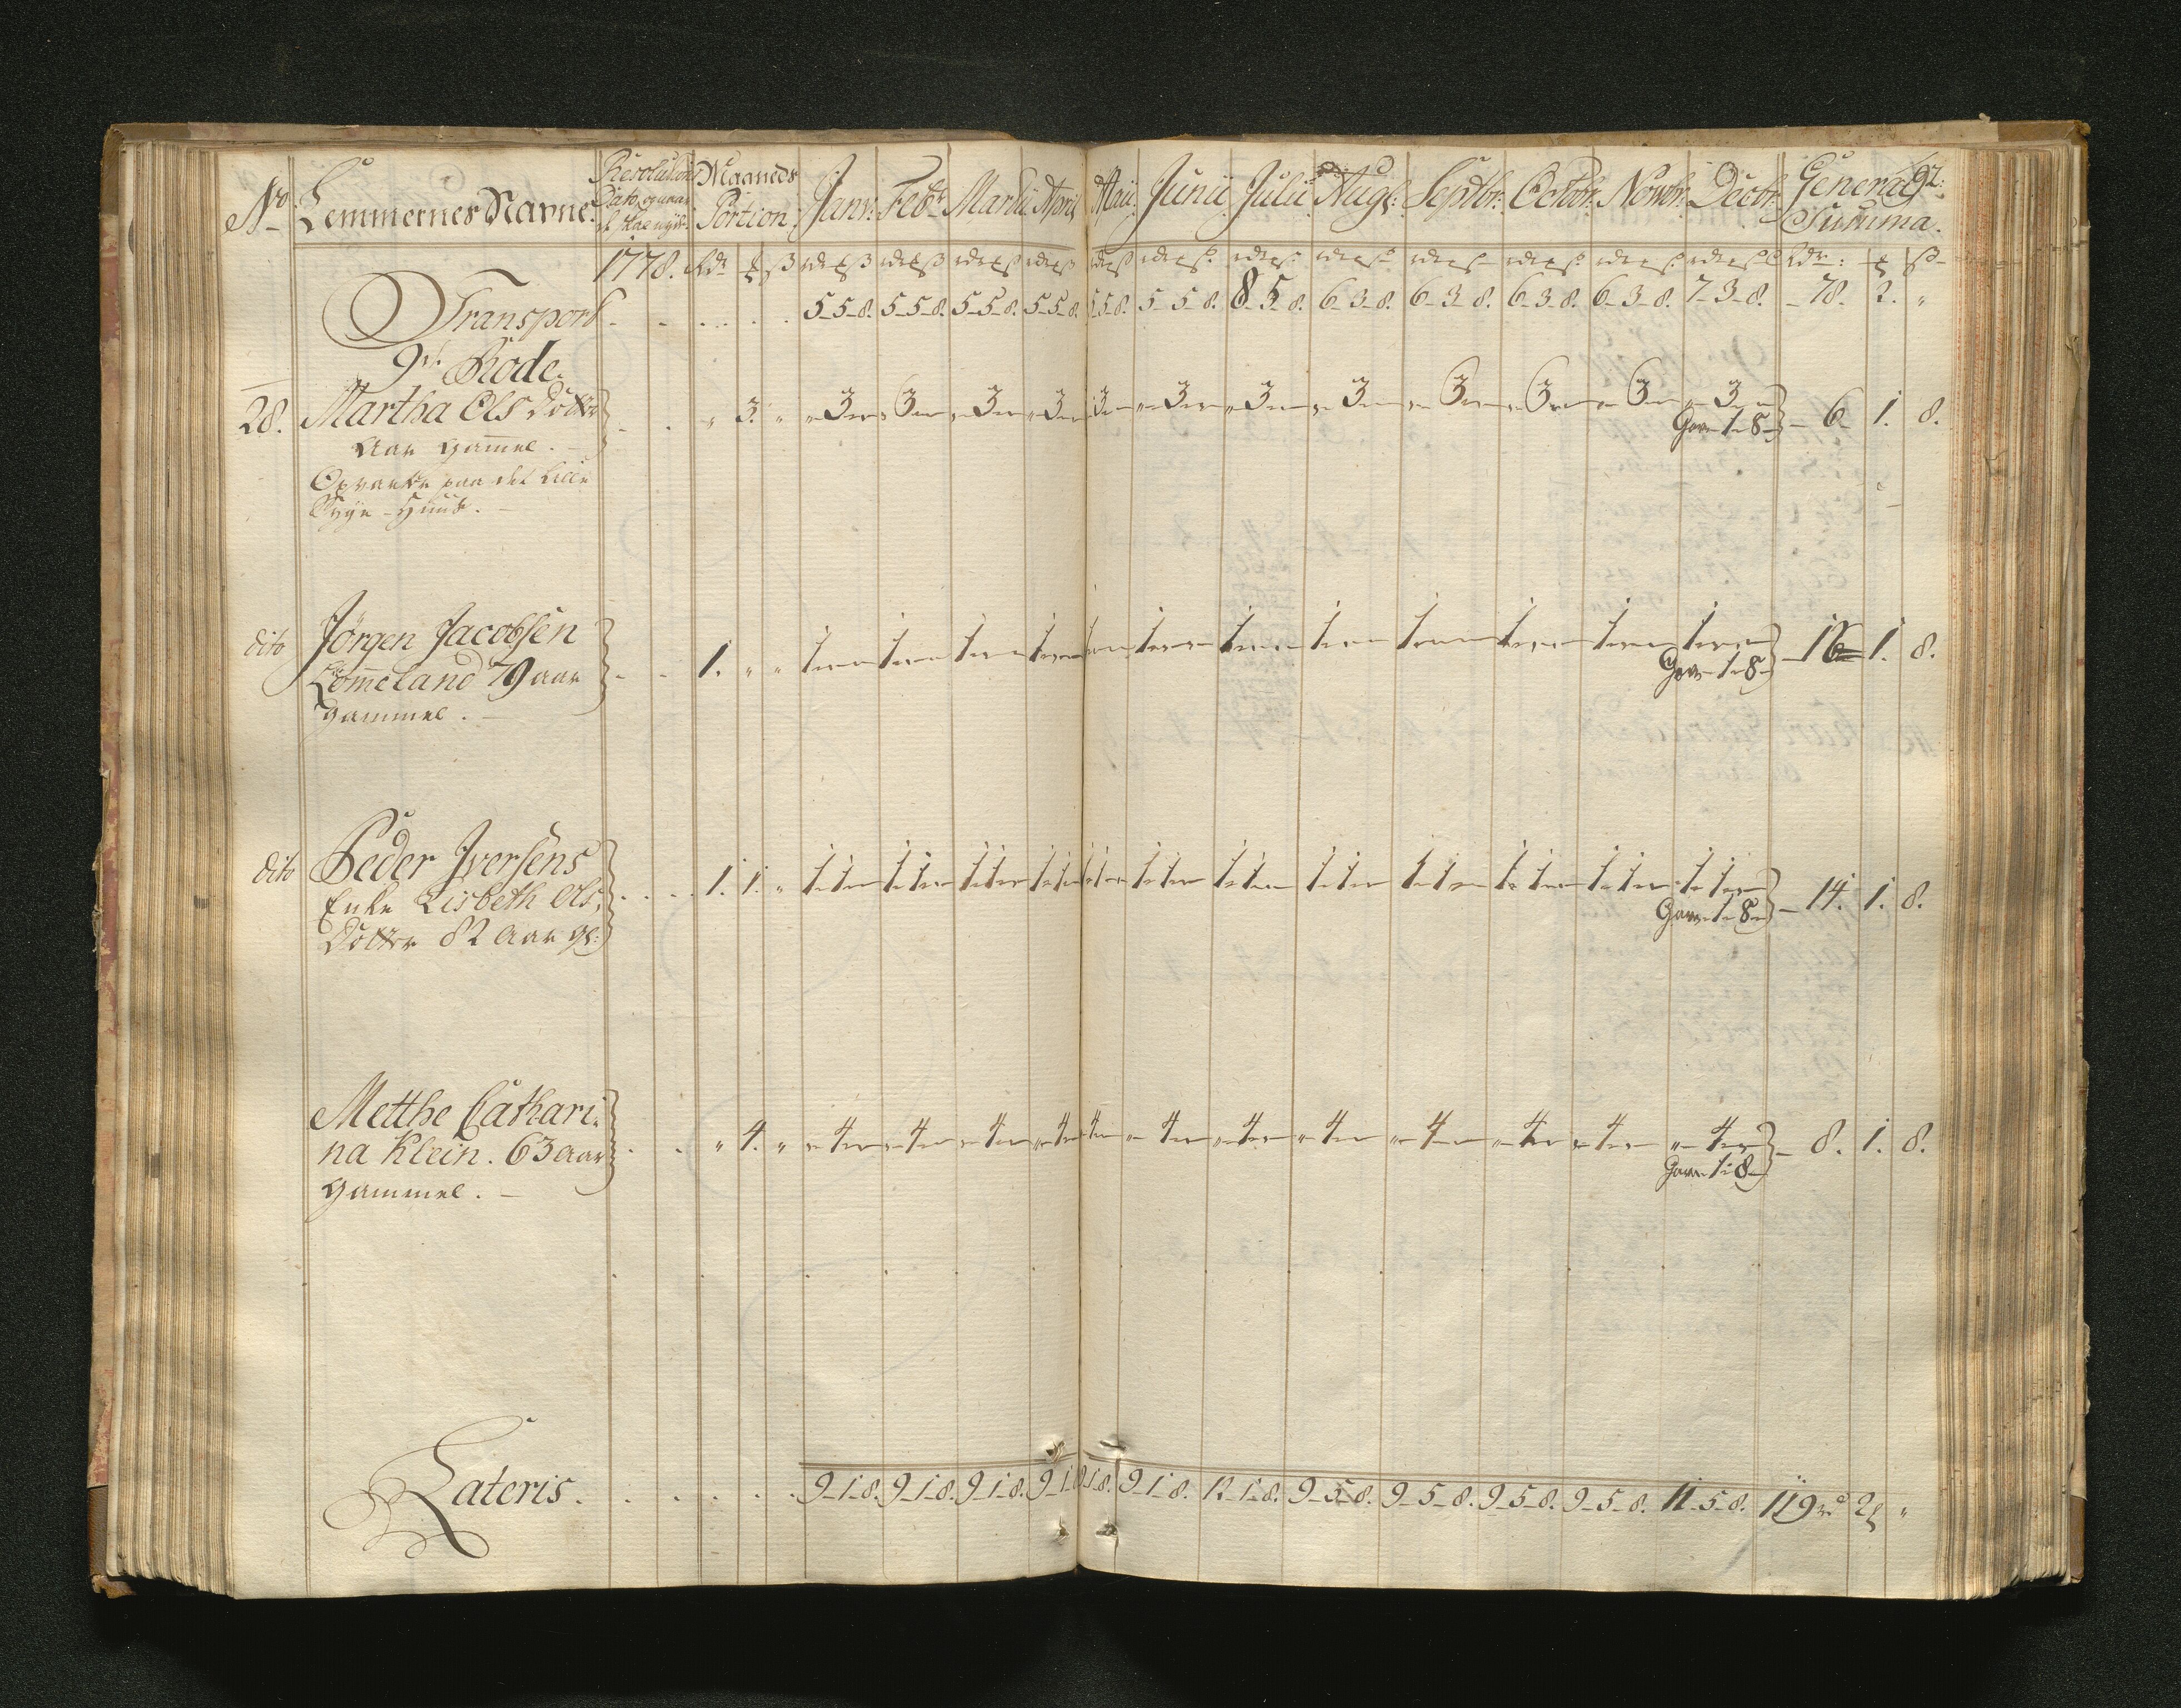 No Lemmernes Navne. Resolutions Dato Maaneds Portion. Janv: Febr: Martii April Maii Junii Julii Aug: Septbr: Octobr: Novbr: Decbr: General Summa. 92.
1778. Rdr ß
Transport 5-5-8. 5-5-8. 5-5-8. 5-5-8. 5-5-8. 5-5-8. 8-5-8. 6-3-8. 6-3-8. 6-3-8. 6-3-8. 7-3-8. 78. 2. "
9de Rode.
28. Martha Ols Dotter " 3. " "-3- "-3- "-3- "-3- "-3- "-3- "-3- "-3- "-3- "-3- "-3- "-3-
Aar gammel. - Gave-1-8- 6- 1. 8.
paa det Lille
Syge-Huus. -
dito Jörgen Jacobsen 1. " " 1- 1- 1- 1- 1- 1- 1- 1- 1- 1- 1- 1-
Lömmeland 79 aar Gave-1-8- 16 1. 8.
gammel. -
dito Peder Jversens 1. 1. " 1-1- 1-1- 1-1- 1-1- 1-1- 1-1- 1-1- 1-1- 1-1- 1-1- 1-1- 1-1-
Enke Lisbeth Ols, Gave-1-8- 14. 1. 8.
Dotter 82 Aar gl:
Metthe Cathari- " 4. " "-4- "-4- "-4- "-4- "-4- "-4- "-4- "-4- "-4- "-4- "-4- "-4-
na Klein. 63 aar Gave-1-8- 8. 1. 8.
gammel. -
Lateris. 9-1-8. 9-1-8. 9-1-8. 9-1-8. 9-1-8. 9-1-8. 12-1-8. 9-5-8. 9-5-8. 9-5-8. 9-5-8. 11-5-8. 119rd 2 "